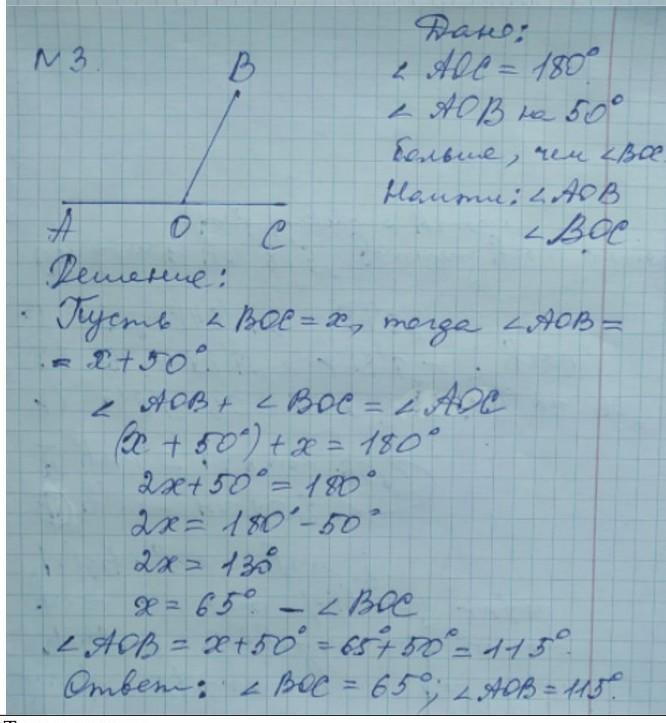 N 3.
Дано:
∠ AOC = 180°
∠ AOB на 50°
больше, чем ∠BOC
Найти: ∠AOB
∠BOC
B
A O C
Решение:
Пусть ∠BOC = x, тогда ∠AOB =
= x + 50°
∠ AOB + ∠ BOC = ∠ AOC
(x + 50°) + x = 180°
2x + 50° = 180°
2x = 180° - 50°
2x = 130°
x = 65° – ∠BOC
∠AOB = x + 50° = 65° + 50° = 115°.
Ответ: ∠BOC = 65°; ∠AOB = 115°.